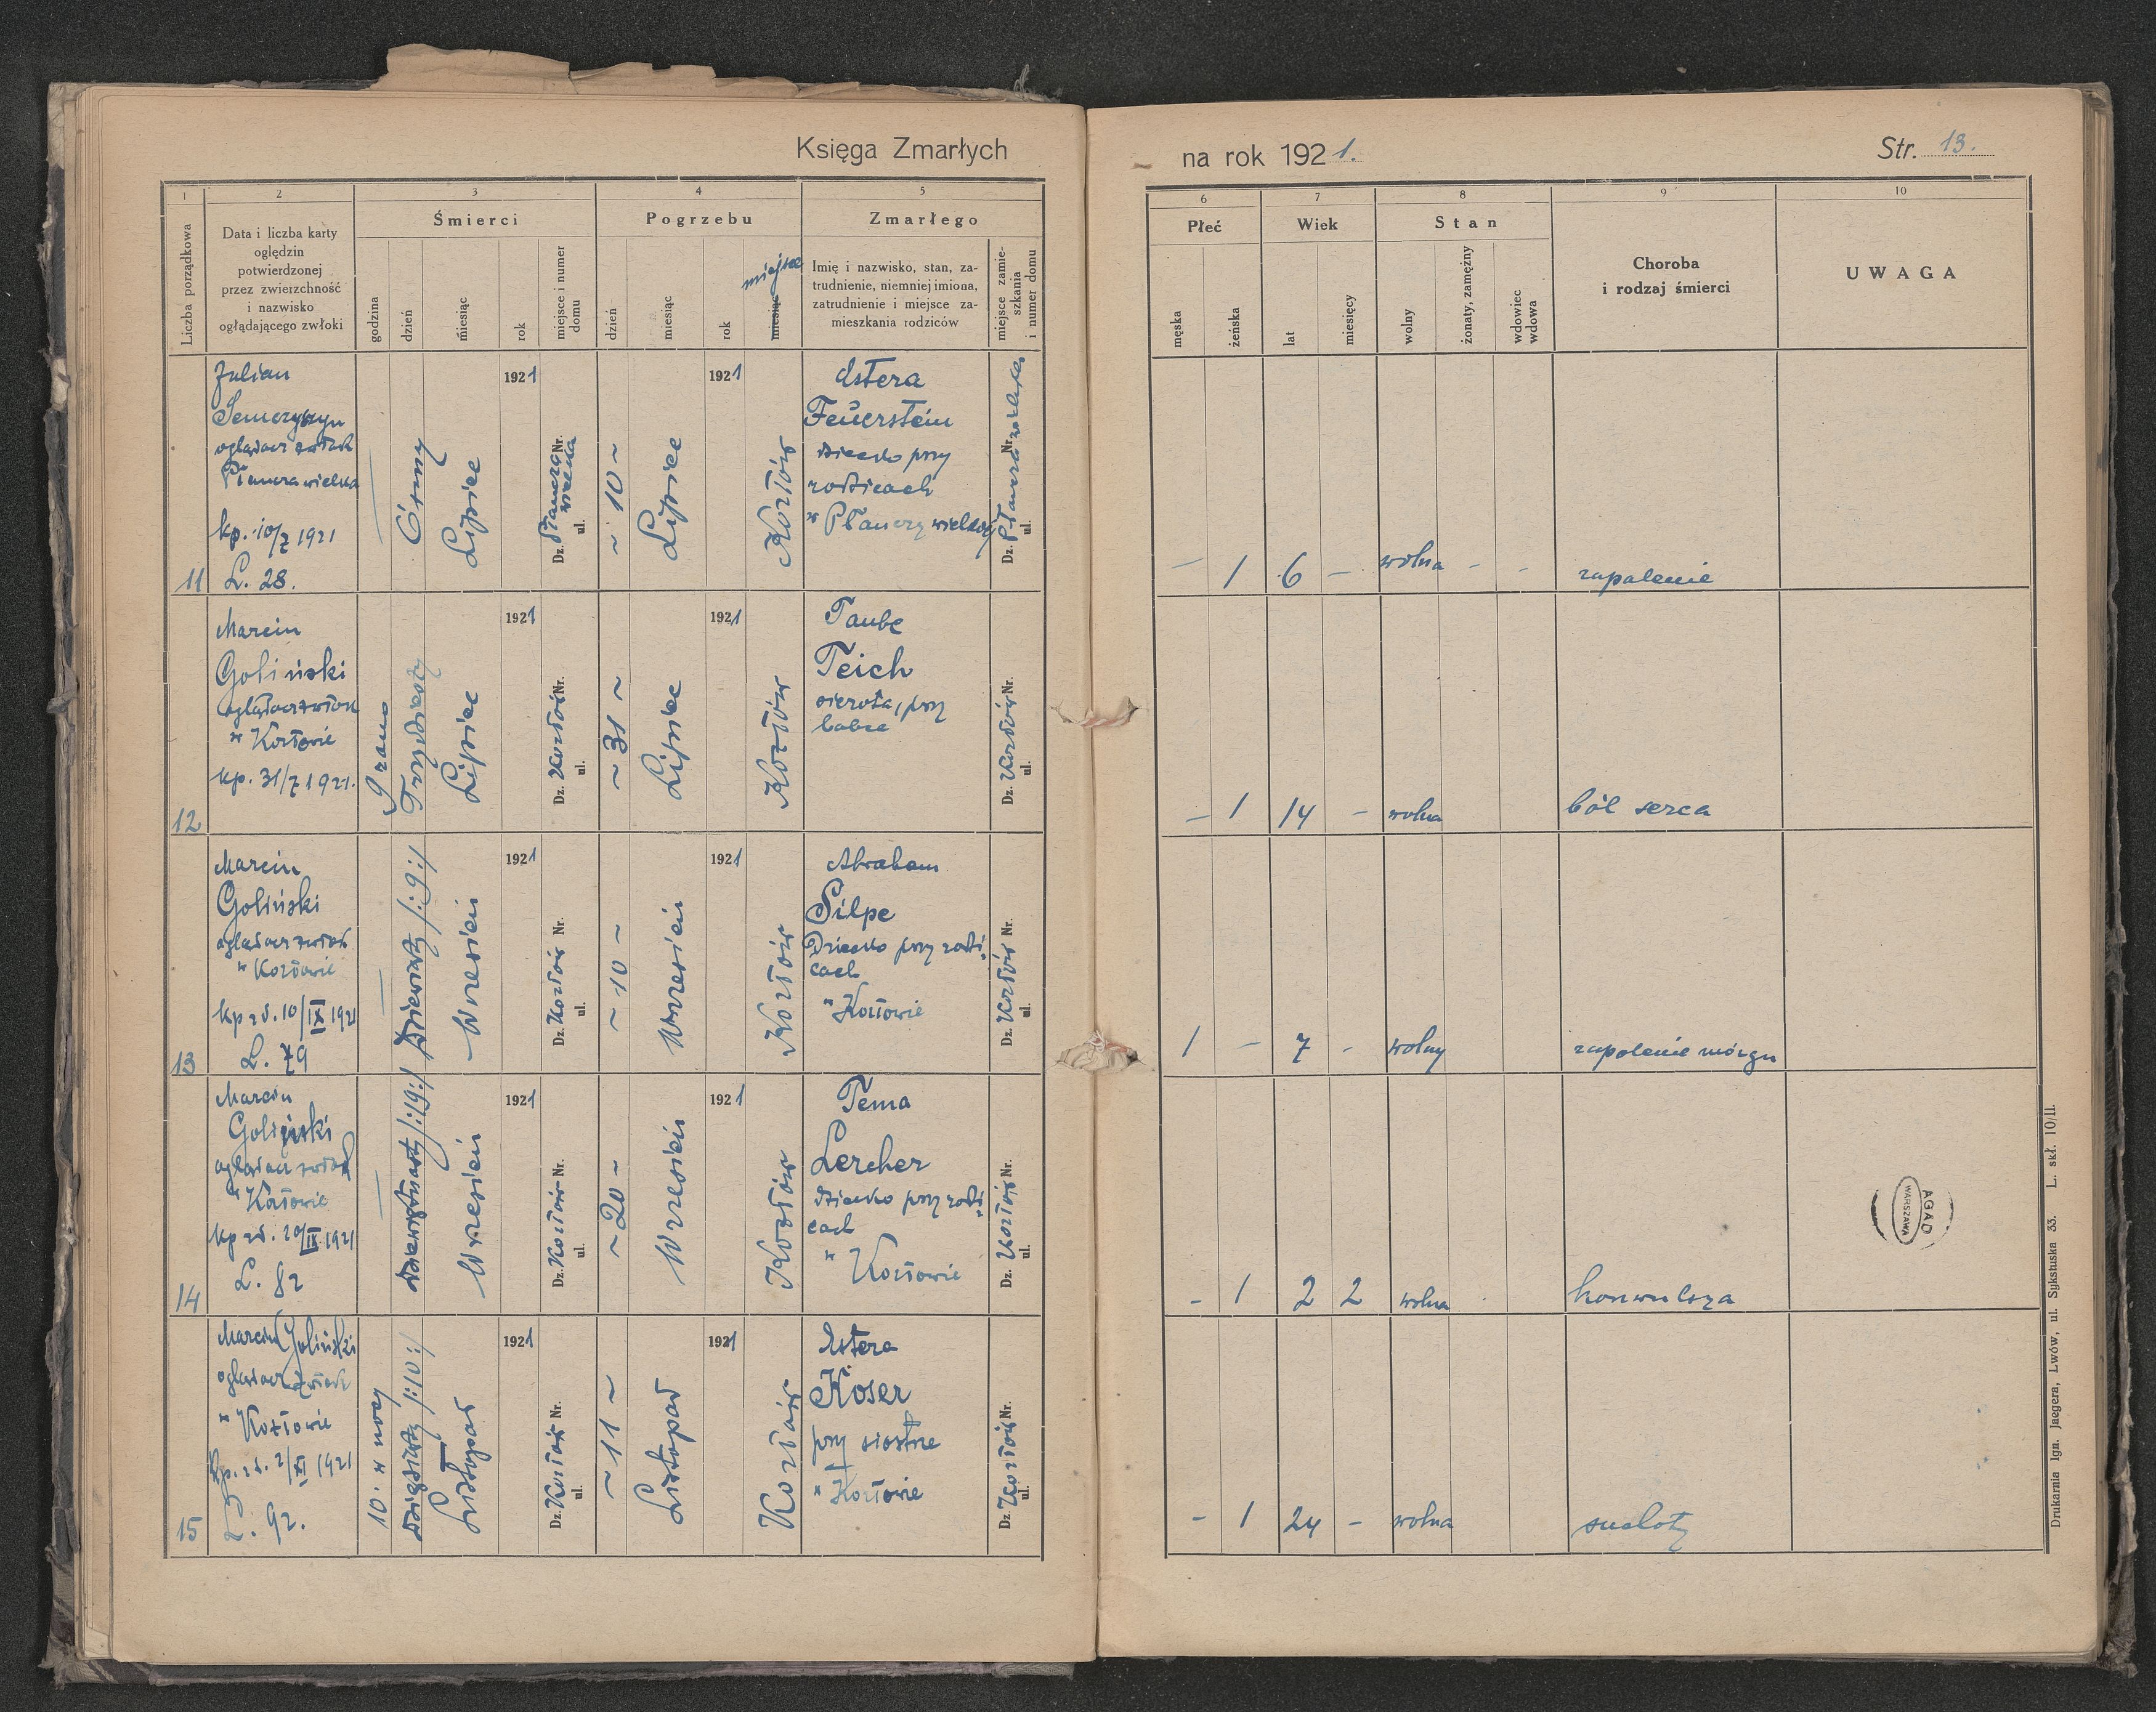 Księga Zmarłych
na rok 1921.
Str. 13.
1
2
3
4
5
6
7
8
9
10
Liczba porządkowa
Data i liczba karty
oględzin
potwierdzonej
przez zwierzchność
i nazwisko
oglądającego zwłoki
Śmierci
godzina
dzień
miesiąc
rok
miejsce i numer
domu
Pogrzebu
dzień
miesiąc
rok
miesiąc
miejsce
Zmarłego
Imię i nazwisko, stan, za-
trudnienie, niemniej imiona,
zatrudnienie i miejsce za-
mieszkania rodziców
miejsce zamie-
szkania
i numer domu
Płeć
męska
żeńska
Wiek
lat
miesięcy
Stan
wolny
żonaty, zamężny
wdowiec
wdowa
Choroba
i rodzaj śmierci
UWAGA
11
Julian
oglądacz zwłok
Płaucza wielka
kp. 10/7 1921
L. 28.
—
Ósmy
Lipiec
1921
Dz. Płaucza wielka Nr.
ul.
~ 10 ~
Lipiec
1921
Kozłów
Estera
Feuerstein
dziecko przy
rodzicach
w Płauczy wielkiej
Dz. Płaucza wielka Nr.
ul.
— 1 6 — wolna - - zapalenie
12
Marcin
Goliński
oglądacz zwłok
w Kozłowie
kp. 31/7 1921.
9 rano
Trzydziesty
Lipiec
1921
Dz. Kozłów Nr.
ul.
~ 31 ~
Lipiec
1921
Kozłów
Taube
Teich
sierota, przy
babce
Dz. Kozłów Nr.
ul.
— 1 14 — wolna ból serca
13
Marcin
Goliński
oglądacz zwłok
w Kozłowie
kp zd. 10/IX 1921
L. 79
—
Dziewiąty /:9:/
Wrzesień
1921
Dz. Kozłów Nr.
ul.
~ 10 ~
Wrzesień
1921
Kozłów
Abraham
Silpe
Dziecko przy rodzi-
cach
w Kozłowie
Dz. Kozłów Nr.
ul.
1 — 7 - wolny zapalenie mózgu
14
Marcin
Goliński
oglądacz zwłok
w Kozłowie
kp zd. 20/IX 1921
L. 82
—
Dziewiętnasty /:19:/
Wrzesień
1921
Dz. Kozłów Nr.
ul.
~ 20 ~
Wrzesień
1921
Kozłów
Tema
Lercher
dziecko przy rodzi-
cach
w Kozłowie
Dz. Kozłów Nr.
ul.
- 1 2 2 wolna konwulsya
15
Marcin Goliński
oglądacz zwłok
w Kozłowie
L. 92.
10. w nocy
dziesiąty /:10:/
Listopad
1921
Dz. Kozłów Nr.
ul.
~ 11 ~
Listopad
1921
Kozłów
Estera
Koser
przy siostrze
w Kozłowie
Dz. Kozłów Nr.
ul.
- 1 24 - wolna suchoty
AGAD
WARSZAWA
Drukarnia Ign. Jaegera, Lwów, ul. Sykstuska 33. L. skł. 10/II.